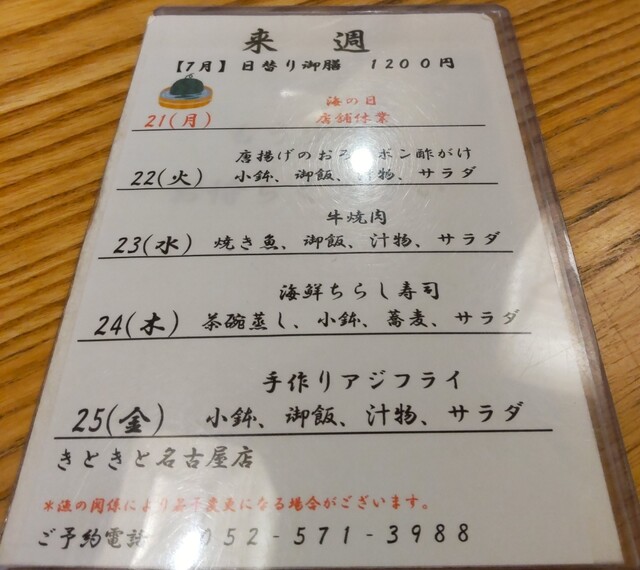 来週
【7月】日替り御膳 1200円
海の日
21(月) 店舗休業
唐揚げのおろ ポン酢がけ
22(火) 小鉢、御飯、汁物、サラダ
牛焼肉
23(水) 焼き魚、御飯、汁物、サラダ
海鮮ちらし寿司
24(木) 茶碗蒸し、小鉢、蕎麦、サラダ
手作りアジフライ
25(金) 小鉢、御飯、汁物、サラダ
きときと名古屋店
*漁の関係により 変更になる場合がございます。
ご予約電話 052-571-3988